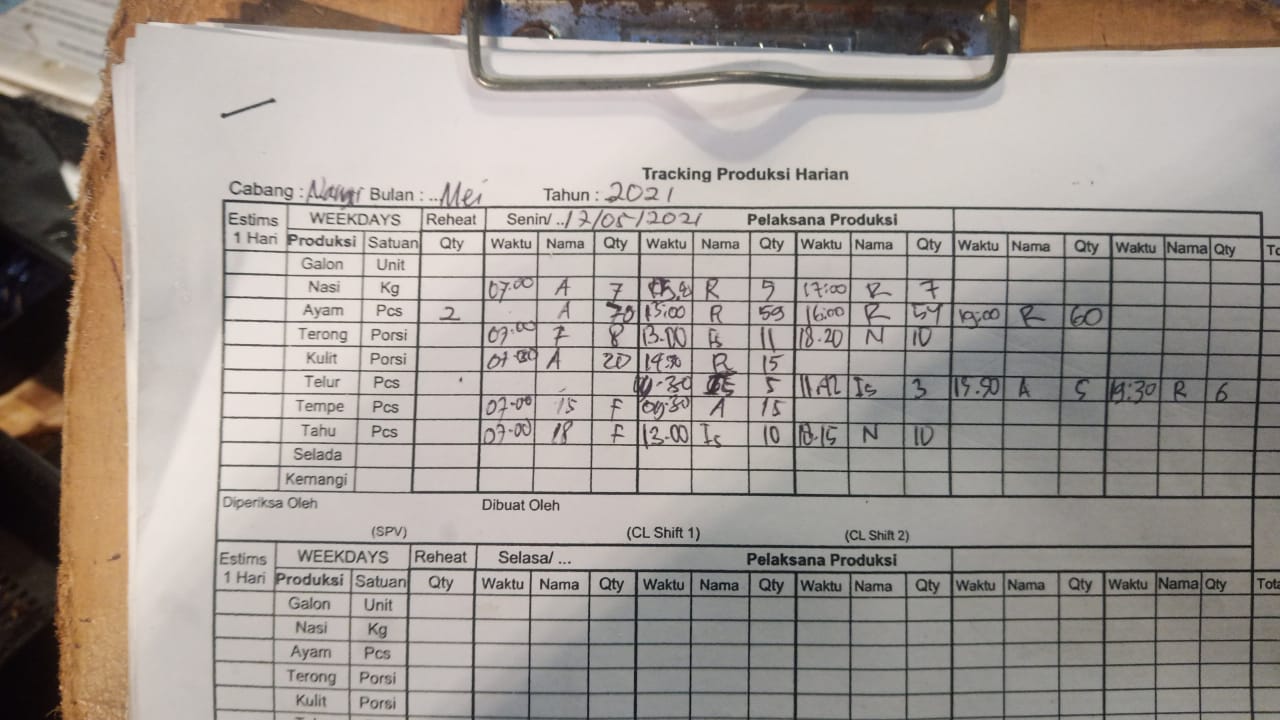 Tracking Produksi Harian
Cabang : Bulan : ..Mei Tahun : 2021
Estims WEEKDAYS Reheat Senin/ ..17/05/2021 Pelaksana Produksi
1 Hari Produksi Satuan Qty Waktu Nama Qty Waktu Nama Qty Waktu Nama Qty Waktu Nama Qty Waktu Nama Qty
Galon Unit
Nasi Kg 07.00 A 7 R 5 17:00 R 7
Ayam Pcs 2 A 70 15:00 R 59 16:00 R 59 19:00 R 60
Terong Porsi 07.00 F 8 13.00 Is 11 18.20 N 10
Kulit Porsi 07.00 A 20 R 15
Telur Pcs 5 Is 3 A 5 19:30 R 6
Tempe Pcs 07.00 15 F 09:30 A 15
Tahu Pcs 07.00 18 F 13.00 Is 10 18.15 N 10
Selada
Kemangi
Diperiksa Oleh Dibuat Oleh
(SPV) (CL Shift 1) (CL Shift 2)
Estims WEEKDAYS Reheat Selasa/ ... Pelaksana Produksi
1 Hari Produksi Satuan Qty Waktu Nama Qty Waktu Nama Qty Waktu Nama Qty Waktu Nama Qty Waktu Nama Qty
Galon Unit
Nasi Kg
Ayam Pcs
Terong Porsi
Kulit Porsi